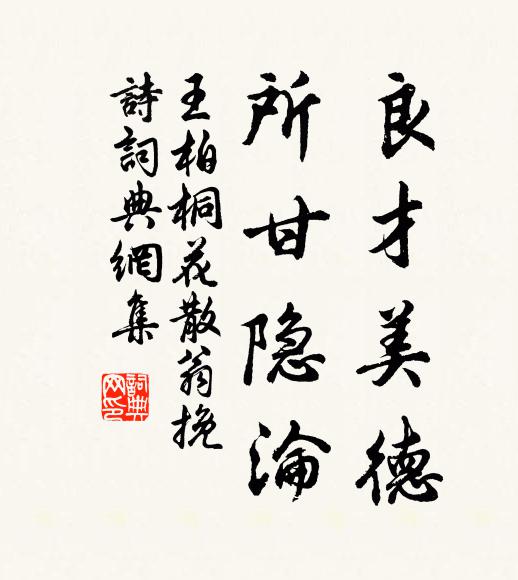 良才美德
所甘隐淪
王柏桐花散翁挽
詩詞典網集
詞典
网印